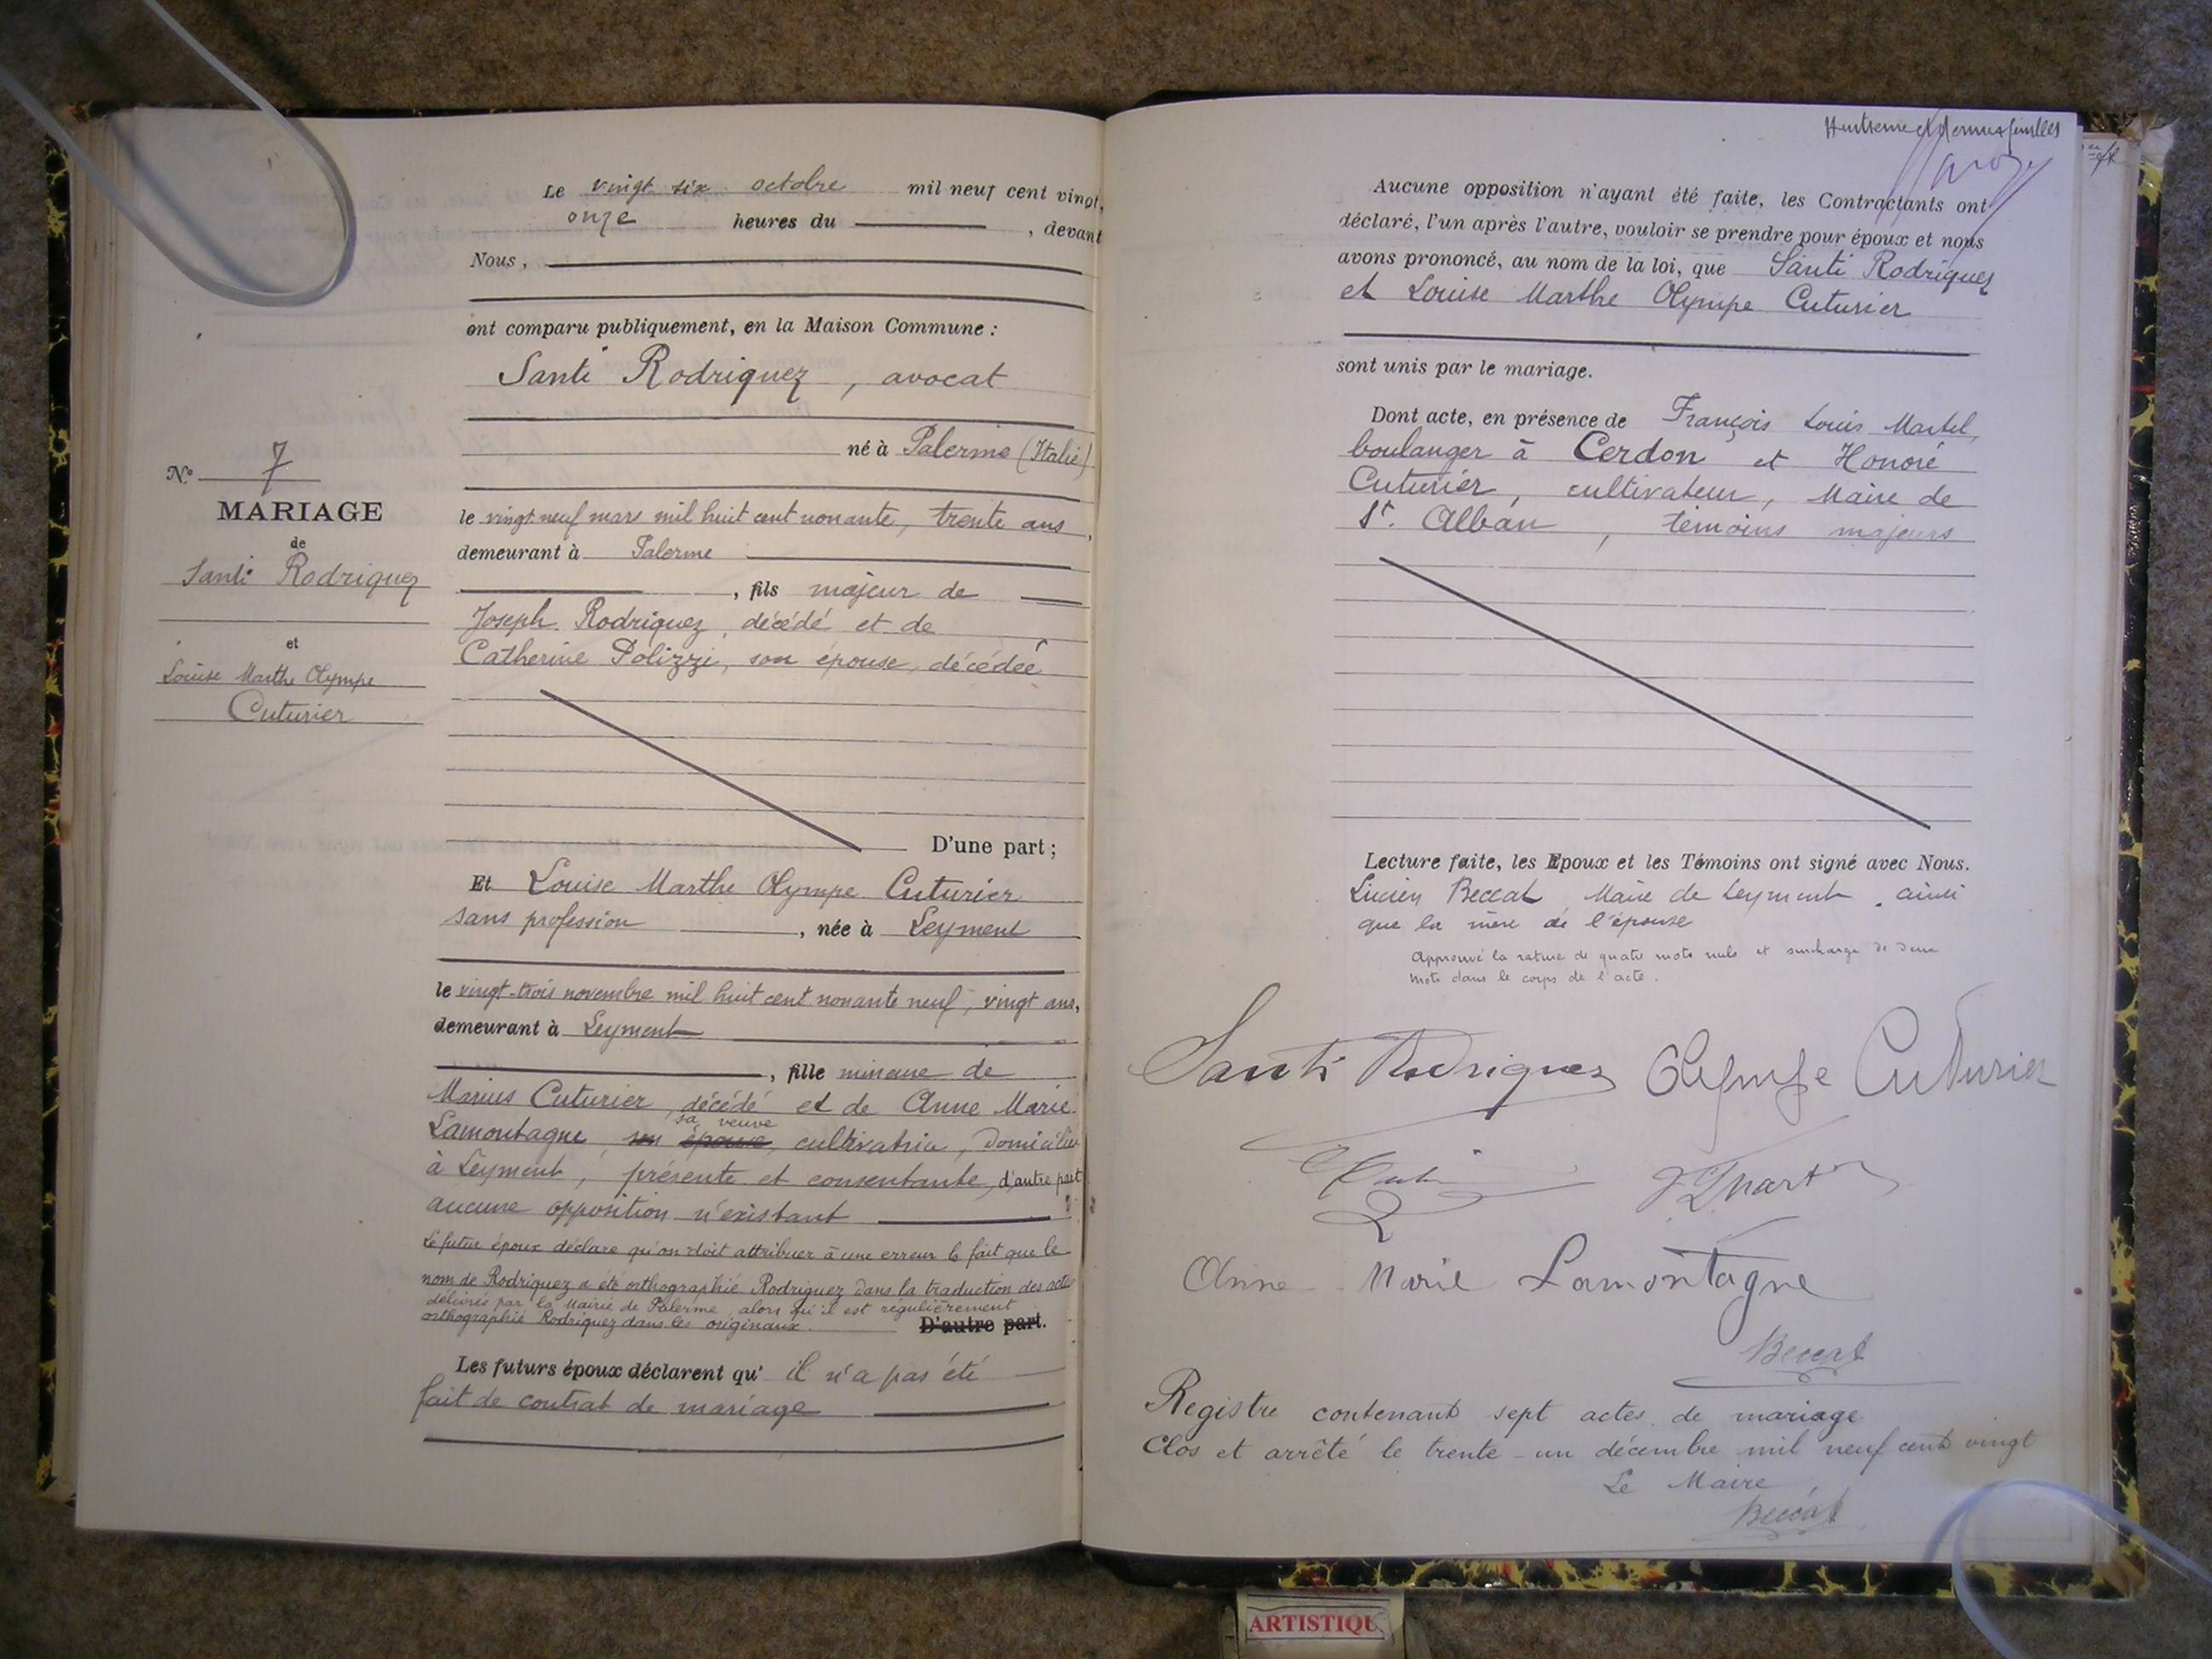 Le vingt six octobre mil neuf cent vingt,
onze heures du , devant
Nous,
ont comparu publiquement, en la Maison Commune :
Santi Rodriguez, avocat
né à Palerme (Italie)
le vingt neuf mars mil huit cent nonante, trente ans,
demeurant à Palerme
, fils majeur de
Joseph Rodriguez, décédé et de
Catherine Polizzi, son épouse, décédée
D'une part ;
N° 7
MARIAGE
de
Santi Rodriguez
et
Louise Marthe Olympe
Cuturier
Et Louise Marthe Olympe Cuturier
sans profession , née à Leyment
le vingt-trois novembre mil huit cent nonante neuf, vingt ans,
demeurant à Leyment
, fille mineure de
Marius Cuturier, décédé et de Anne Marie
sa veuve
Lamontagne, son épouse, cultivatrice, domiciliée
à Leyment, présente et consentante, d'autre part
aucune opposition n'existant
Le futur époux déclare qu'on doit attribuer à une erreur le fait que le
nom de Rodriguez a été orthographié Rodriguez dans la traduction des actes
délivrés par la Mairie de Palerme, alors qu'il est régulièrement
orthographié Rodriguez dans les originaux. D'autre part.
Les futurs époux déclarent qu' il n'a pas été
fait de contrat de mariage
Huitième et dernier feuillet
Aucune opposition n'ayant été faite, les Contractants ont
déclaré, l'un après l'autre, vouloir se prendre pour époux et nous
avons prononcé, au nom de la loi, que Santi Rodriguez
et Louise Marthe Olympe Cuturier
sont unis par le mariage.
Dont acte, en présence de François Louis Martel,
boulanger à Cerdon et Honoré
Cuturier, cultivateur, Maire de
St. Alban, témoins majeurs
Lecture faite, les Epoux et les Témoins ont signé avec Nous.
Lucien Beccat, Maire de Leyment, ainsi
que la mère de l'épouse
Approuvé la rature de quatre mots nuls et surcharge de deux
mots dans le corps de l'acte.
Santi Rodriguez Olympe Cuturier
Anne Marie Lamontagne
Beccat
Registre contenant sept actes de mariage
Clos et arrêté le trente-un décembre mil neuf cent vingt
Le Maire
Beccat
ARTISTIQU